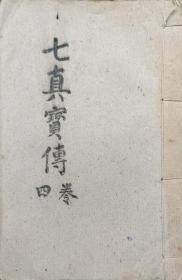 七真寳傳
四卷